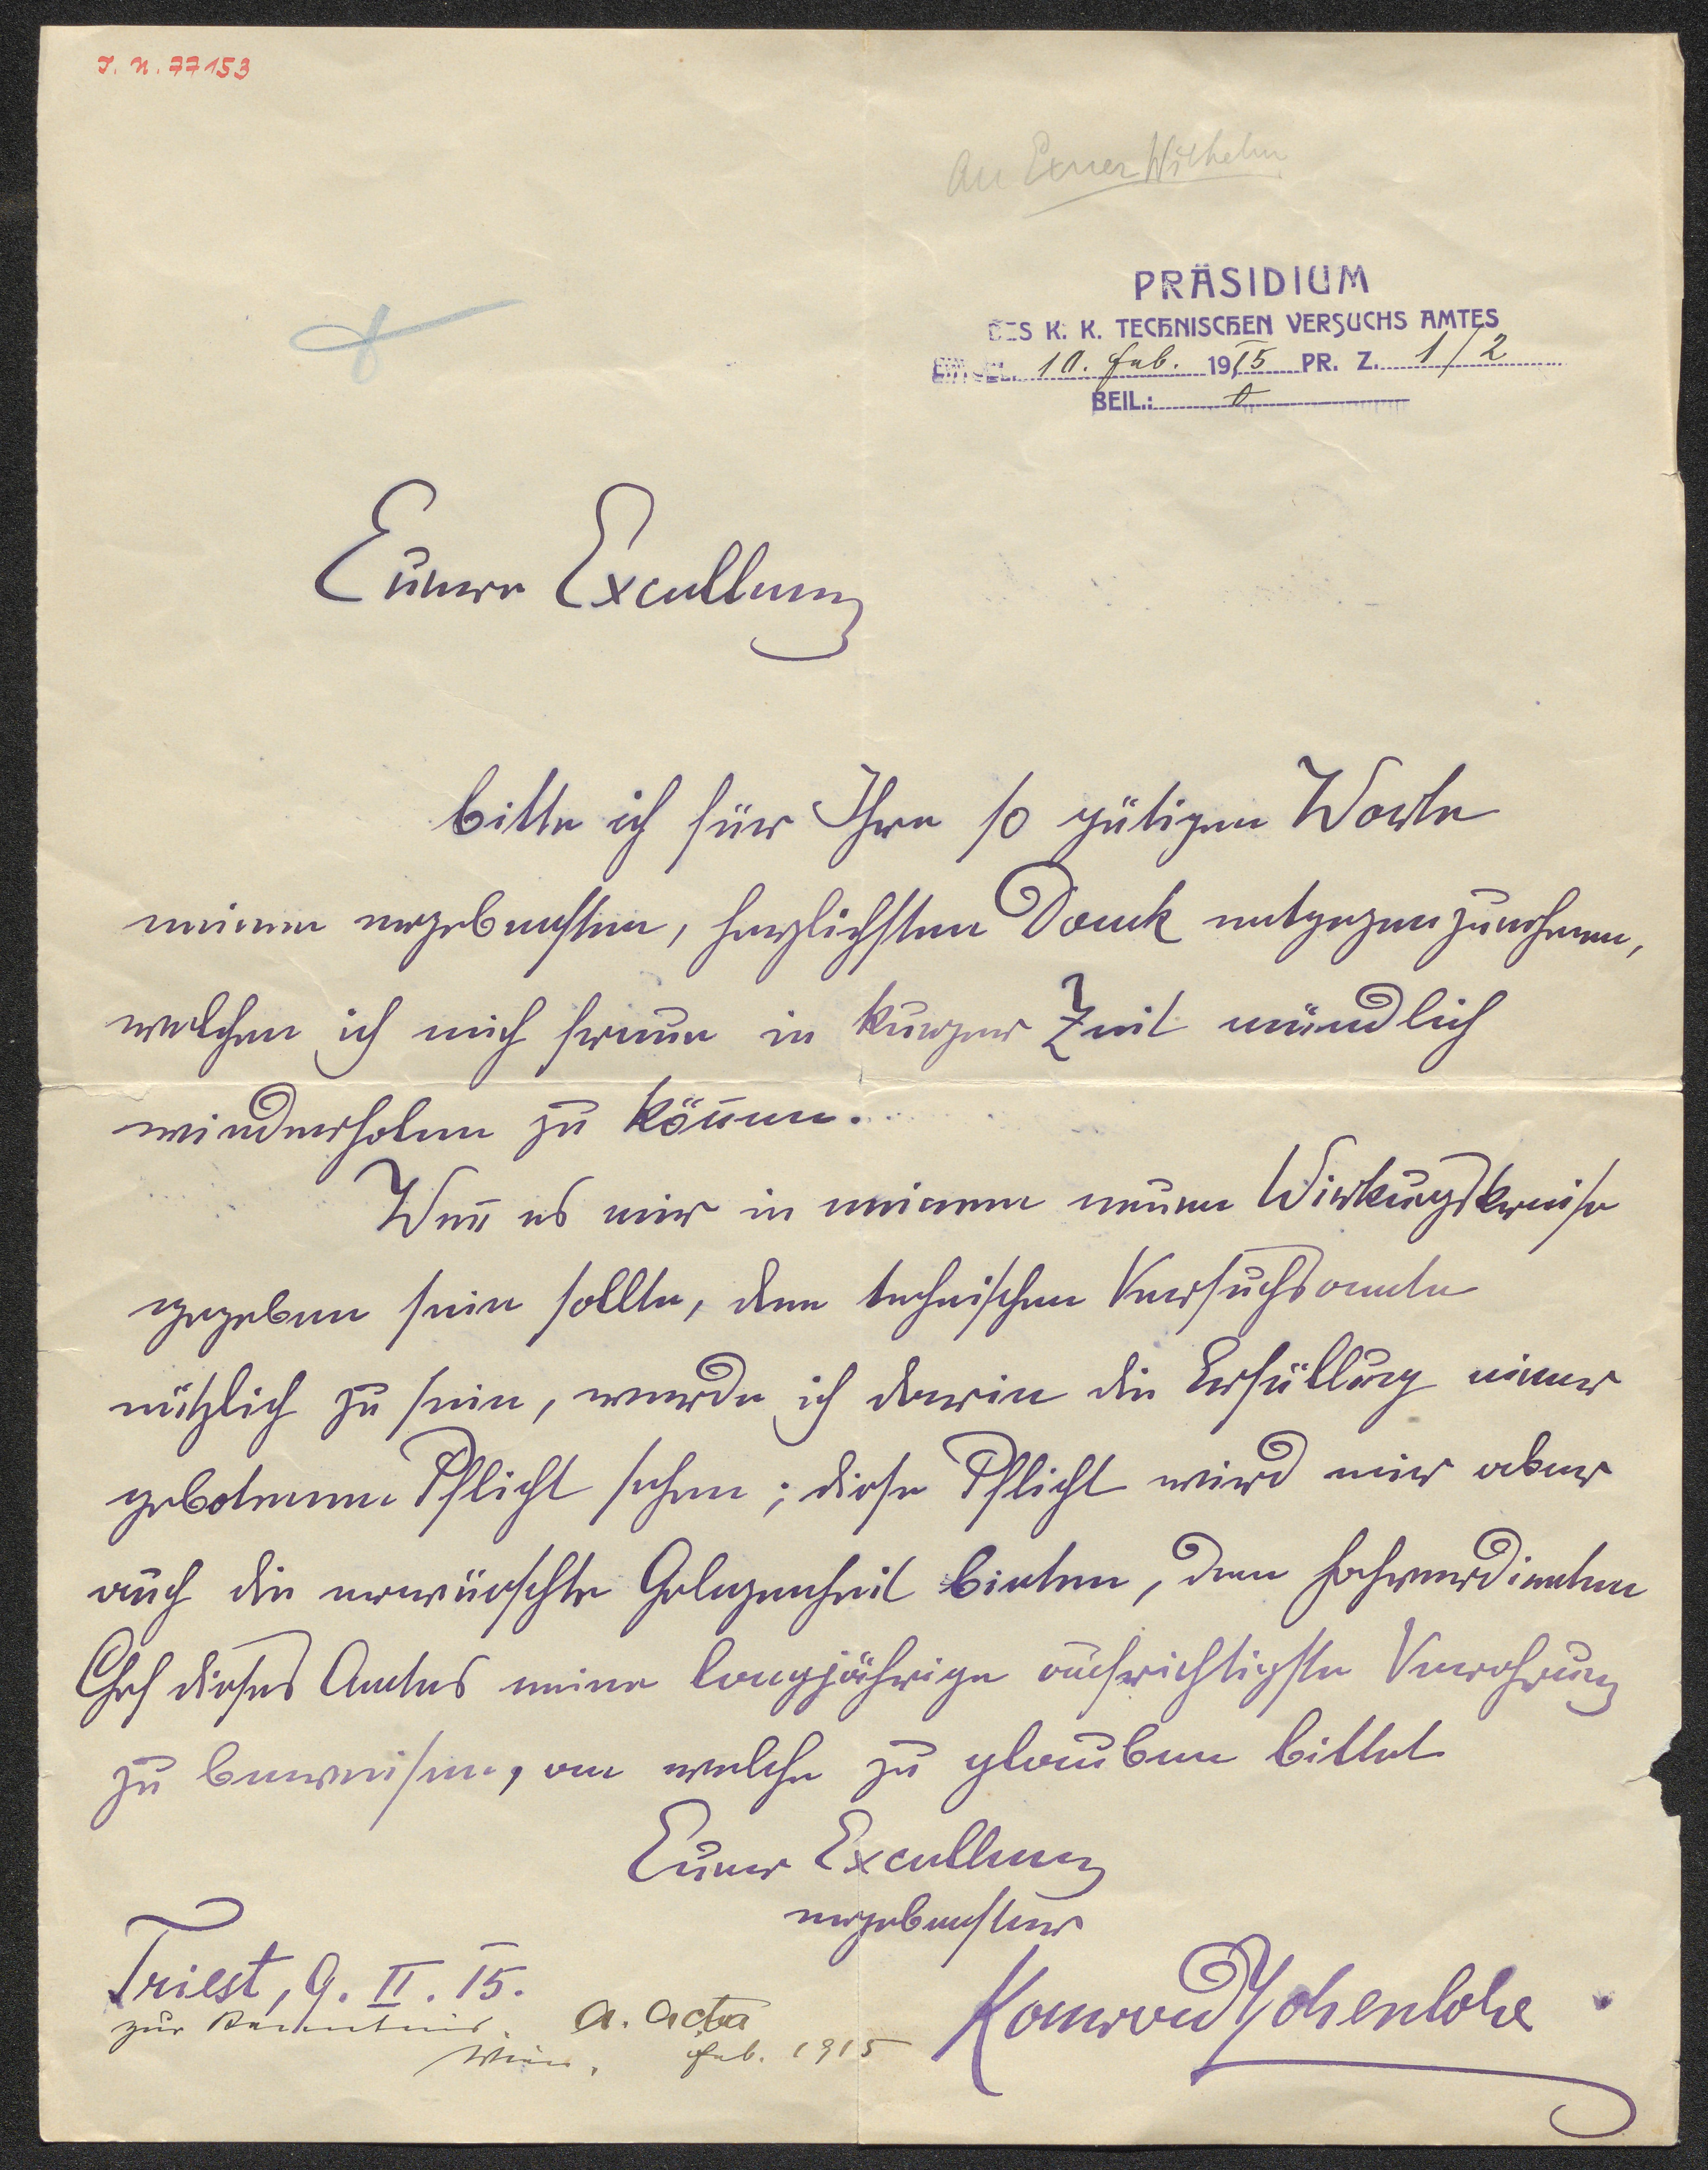 J. N. 77153
An Exner Wilhelm
PRÄSIDIUM
DES K. K. TECHNISCHEN VERSUCHS AMTES
EINGEL. 10. Feb. 1915 PR. Z. 1/2
BEIL.:
Euere Excellenz
bitte ich für Ihre so gütigen Worte
meinen ergebensten, herzlichsten Dank entgegenzunehmen,
welchen ich mich freue in kurzer Zeit mündlich
wiederholen zu können.
Wen̄ es mir in meinem neuen Wirkungskreise
gegeben sein sollte, dem technischen Versuchsamte
nützlich zu sein, werde ich darin die Erfüllung einer
gebotenen Pflicht sehen; diese Pflicht wird mir aber
auch die erwünschte Gelegenheit bieten, dem hochverdienten
Chef dieses Amtes meine langjährige aufrichtigste Verehrung
zu beweisen, an welche zu glauben bittet
Euer Excellenz
ergebenster
Konrad Hohenlohe
Triest, 9. II. 15.
zur Kenntnis. a. acta
Wien, Feb. 1915